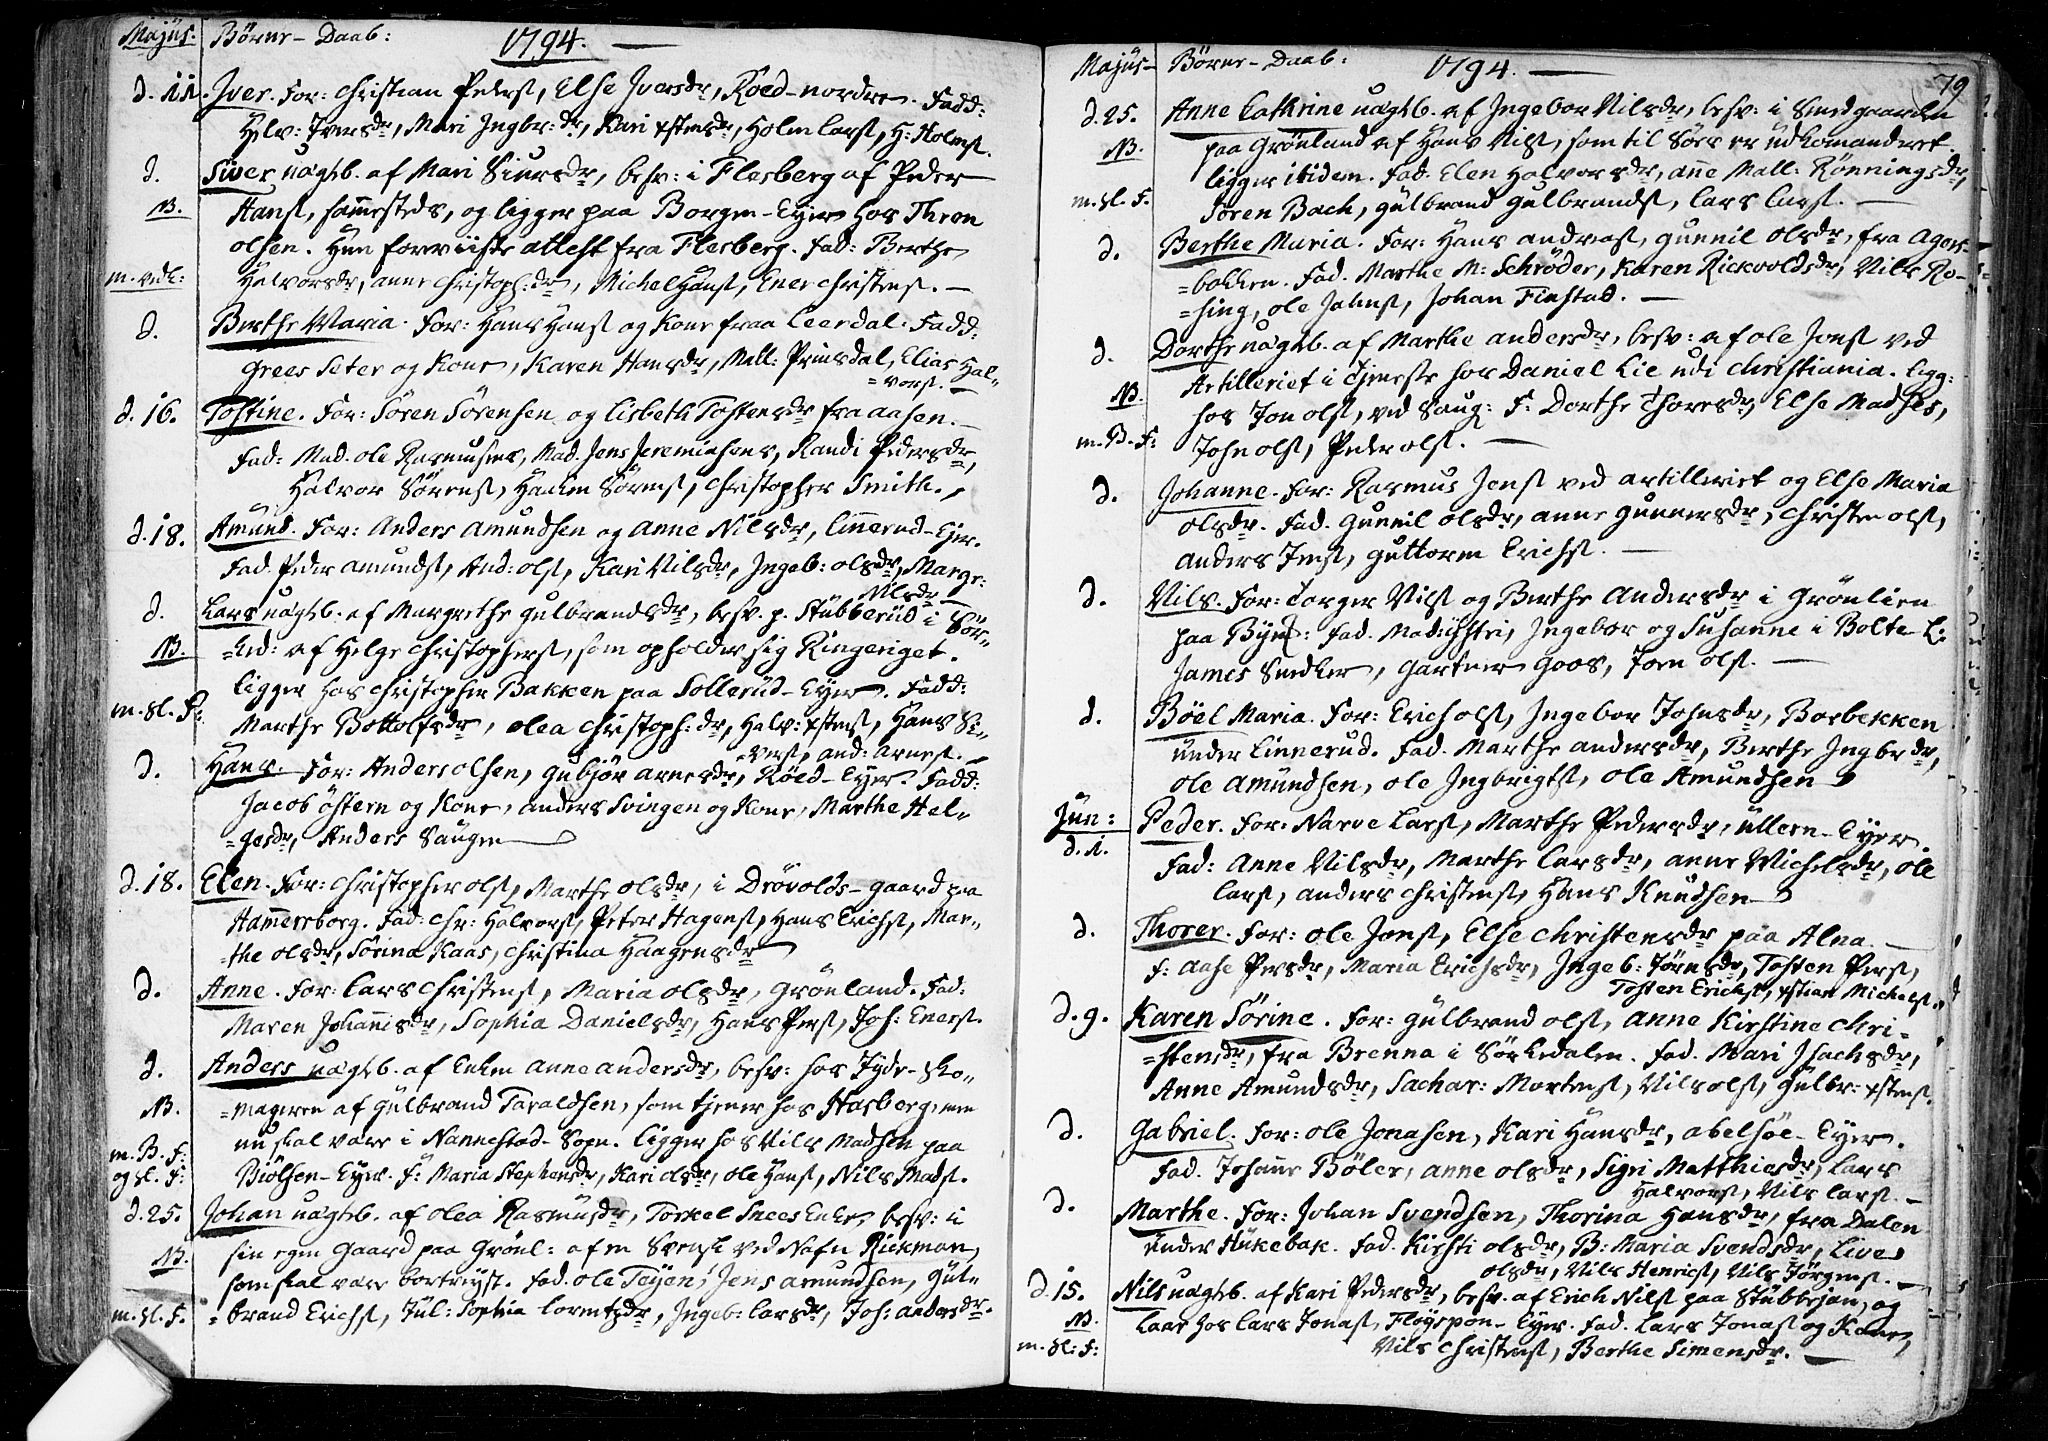 Majus. Börne-Daab: 1794.
d. 11. Iver. For: Christian Peders, Else Iversdr, Röed-nordre. Fadd:
Helv: Iversdr, Mari Ingbr:dr, Kari xstensdr, Holm Lars, H: Holms.
d. Siver uægtb. af Mari Siursdr, besv: i Flesberg af Peder
NB. Hans, sammesteds, og ligger paa Borgen-Eyer hos Thron
Olsen. Hun forviiste attest fra Flesberg. Fad: Berthe
m. vedl: Halvorsdr, Anne Christoph:dr, Michel Hans, Ener Christens. —
d. Berthe Maria. For: Hans Hans og Kone fraa Leerdal. Fadd:
Grees Seter og Kone, Karen Hansdr, Mall: Prinsdal, Elias Hal-
=vors. —
d. 16. Tostine. For: Sören Sörensen og Lisbeth Tostensdr fra Aasen. —
Fad: Mad. Ole Rasmusens, Mad. Jens Jeremiasens, Randi Pedersdr,
Halvor Sörens, Hachen Sörens, Christopher Smith.
d. 18. Amund. For: Anders Amundsen og Anne Nilsdr, Linnerud-Ejer.
Fad. Peder Amunds, And: Ols, Kari Nilsdr, Ingeb: Olsdr, Margr:
Nilsdr. —
d. Lars uægtb. af Margrethe Gulbrandsdr, besv. p. Stubberud i Sör-
NB. =ked: af Helge Christophers, som opholder sig Ringeriget.
ligger hos Christopher Bakken paa Sollerud-Eyer. Fadd:
m. sl. F: Marthe Bottolfsdr, Olea Christoph:dr, Halv: xstens, Hans Si-
=vers, And: Arnes. —
d. Hans. For: Anders Olsen, Gubjör Arnesdr, Röed-Eyer. Fadd:
Jacob Östern og Kone, Anders Svingen og Kone, Marthe Hel-
=gesdr, Anders Saugen
d. 18. Elen. For: Christopher Ols, Marthe Olsdr, i Drövolds-gaard paa
Hammersborg. Fad: Chr: Halvors, Peter Hagens, Hans Erichs, Mar-
=the Olsdr, Sörina Kaas, Christina Haagensdr
d. Anne. For: Lars Christens, Maria Olsdr, Grönland. Fad:
Maren Johannisdr, Sophia Danielsdr, Hans Pers, Joh: Eners.
d. Anders uægtb. af Enken Anne Andersdr, besv: hos Tyde-sko-
NB. =mageren af Gulbrand Taraldsen, som tjener hos Hasberg, men
nu skal være i Nannestad-Sogn. ligger hos Nils Madsen paa
m. B. F: og sl. F: Biölsen-Eyer. F: Maria Stephensdr, Kari Olsdr, Ole Hans, Nils Mads.
d. 25. Johan uægtb. af Olea Rasmusdr, Torkel Snees Enke, besv: i
NB. sin egen Gaard paa Grönl: af en Svensk ved Nafn Rickman,
som skal være bortreyst. Fad. Ole Teyen, Jens Amundsen, Gul-
m. sl. F. =brand Erichs, Jul: Sophia Lorentzdr, Ingeb: Larsdr, Joh: Andersdr.
Majus- Börne-Daab: 1794. — 79
d. 25. Anne Cathrine uægtb. af Ingebor Nilsdr, besv: i Smedgaarden
NB. paa Grönland af Hans Nils, som til Söes er udkomanderet.
ligger ibidem. Fad. Elen Halvorsdr, Anne Mall: Rönningsdr,
m. sl. F. Sören Bach, Gulbrand Gulbrands, Lars Lars. —
d. Berthe Maria. For: Hans Andreas, Gunnil Olsdr, fra Ager-
=bakken. Fad. Marthe M: Schröder, Karen Rickvoldsdr, Nils Ro-
=sing, Ole Johns, Johan Finstad. —
d. Dorthe uægtb. af Marthe Andersdr, besv: af Ole Jons ved
NB. Artilleriet i tjeneste hos Daniel Lie udi Christiania. ligg:
hos Jon Ols, ved Saug: F: Dorthe Thoresdr, Else Madses,
m. B. F: John Ols, Peder Ols. —
d. Johanne. For: Rasmus Jens ved Artilleriet og Else Maria
Olsdr. Fad. Gunnil Olsdr, Anne Gunnersdr, Christen Ols,
Anders Jens, Guttorm Erichs. —
d. Nils. For: Torger Nils og Berthe Andersdr i Grönlien
paa Bym: Fad. Mad: , Ingebor og Susanne i Bolte-L:
James Smeker, Gartner Goos, Joen Ols. —
d. Böel Maria. For: Erich Ols, Ingebor Johnsdr, Borbekken
under Linnerud. Fad. Marthe Andersdr, Berthe Ingbrdr,
Ole Amundsen, Ole Ingbrigts, Ole Amundsen
Jun: d. 1. Peder. For: Narve Lars, Marthe Pedersdr, Ullern-Eyer.
Fad: Anne Nilsdr, Marthe Larsdr, Anne Michelsdr, Ole
Lars, Anders Christens, Hans Knudsen
d. Thorer. For: Ole Jons, Else Christensdr paa Alna. —
F: Aase Persdr, Maria Erichsdr, Ingeb: Jörnsdr, Tosten Pers,
Tosten Erichs, xstian Michels.
d. 9. Karen Sörine. For: Gulbrand Ols, Anne Kirstine Chri-
=stensdr, fra Brenna i Sörkedalen. Fad. Mari Isachsdr,
Anne Amundsdr, Sachar: Mortens, Nils Ols, Gulbr: xstens.
d. Gabriel. For: Ole Jonasen, Kari Hansdr, Abelsöe-Eyer.
Fad. Johanne Böler, Anne Olsdr, Sigri Matthiesdr, Lars
Halvors, Nils Lars. —
d. Marthe. For: Johan Svendsen, Thorina Hansdr, fra Dalen
under Hukebak. Fad. Kirsti Olsdr, B: Maria Svendsdr, Live
Olsdr, Nils Henrics, Nils Jörgens. —
d. 15. Nils uægtb. af Kari Pedersdr, besv. af Erich Nils paa Stubbejan, og
NB. laae hos Lars Jonas, Flöyspon-Eyer. Fad. Lars Jonas og Kone,
m. sl: F: Nils Christens, Berthe Simensdr. —